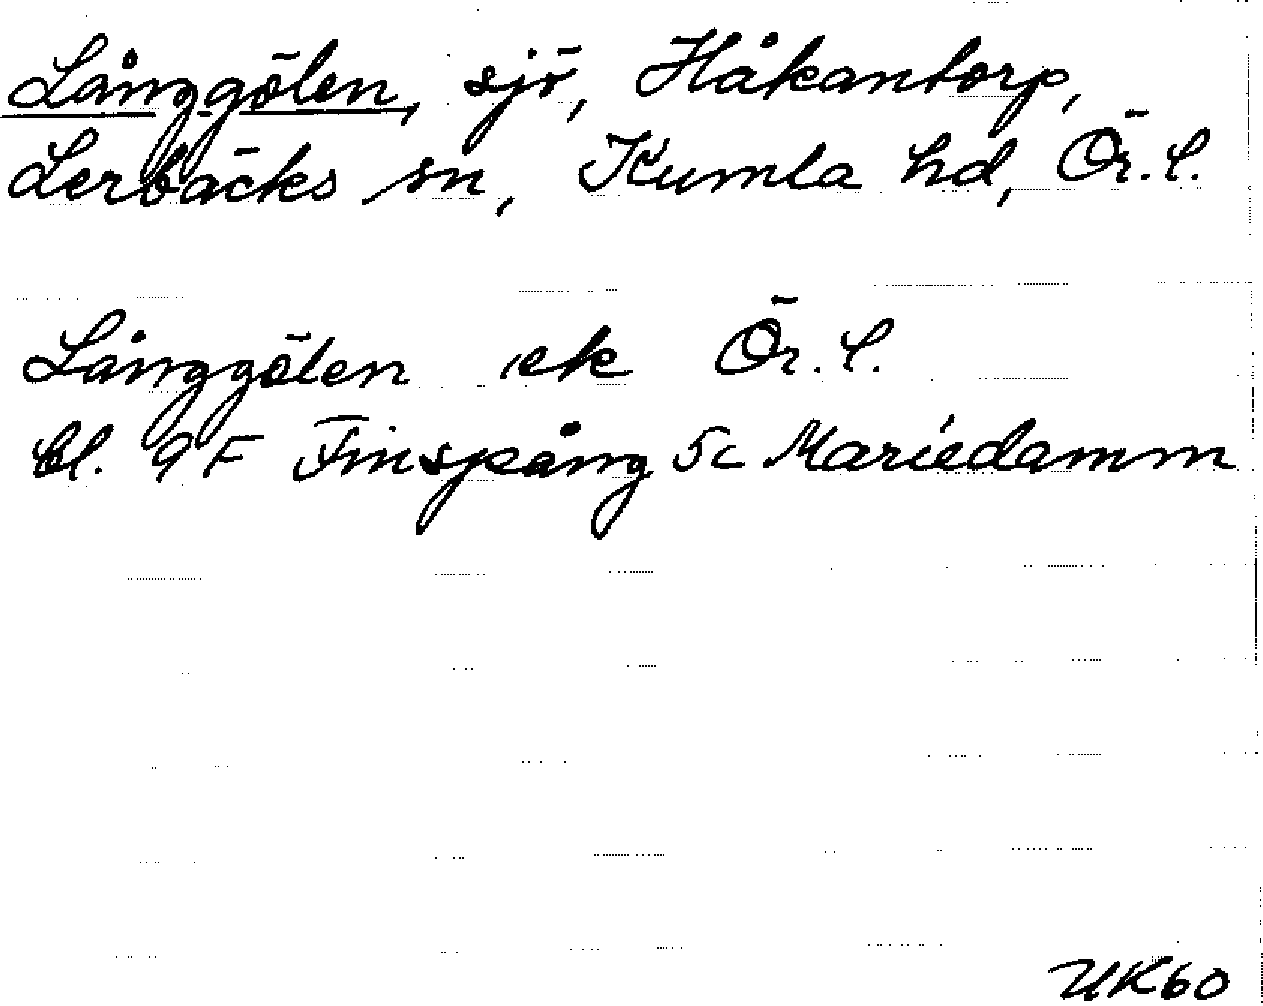 Långgölen, sjö, Håkantorp,
Lerbäcks sn, Kumla hd, Ör. l.
Långgölen ek Ör. l.
bl. 9 F Finspång 5c Mariedamm
UK60